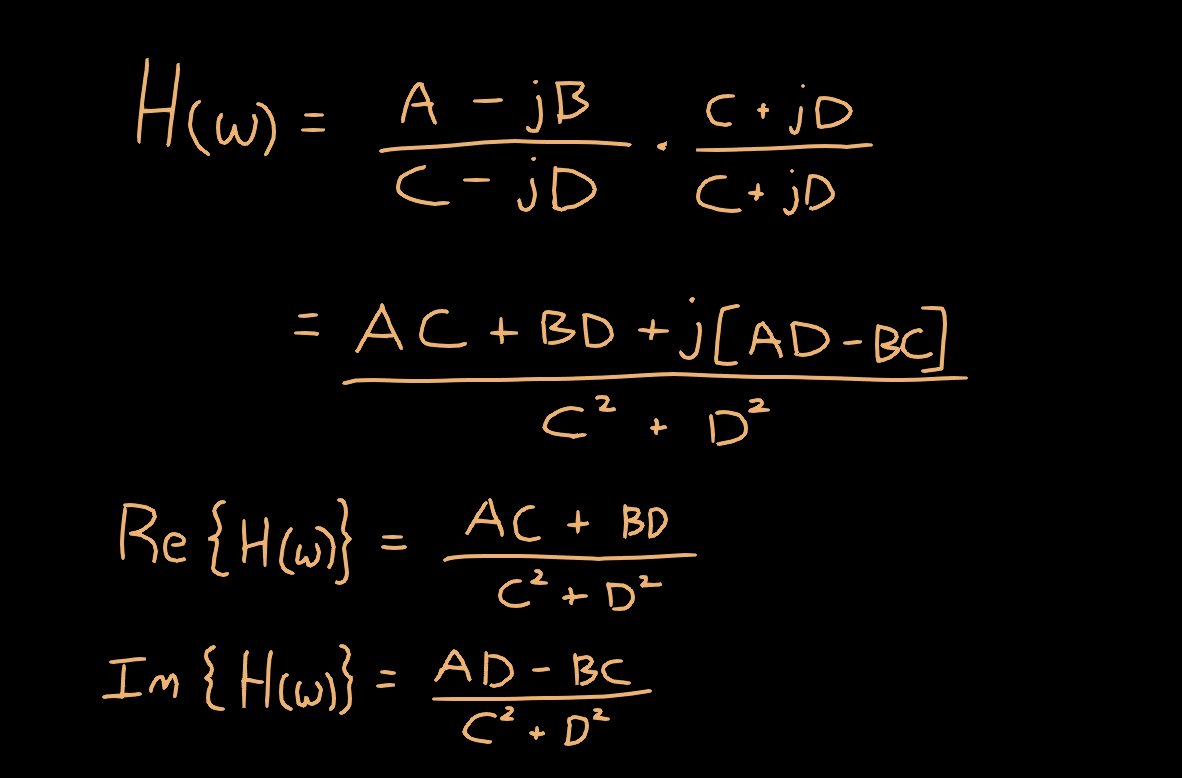 H(ω) = \frac{A - jB}{C - jD} \cdot \frac{C + jD}{C + jD}
= \frac{AC + BD + j[AD - BC]}{C^2 + D^2}
Re{H(ω)} = \frac{AC + BD}{C^2 + D^2}
Im{H(ω)} = \frac{AD - BC}{C^2 + D^2}